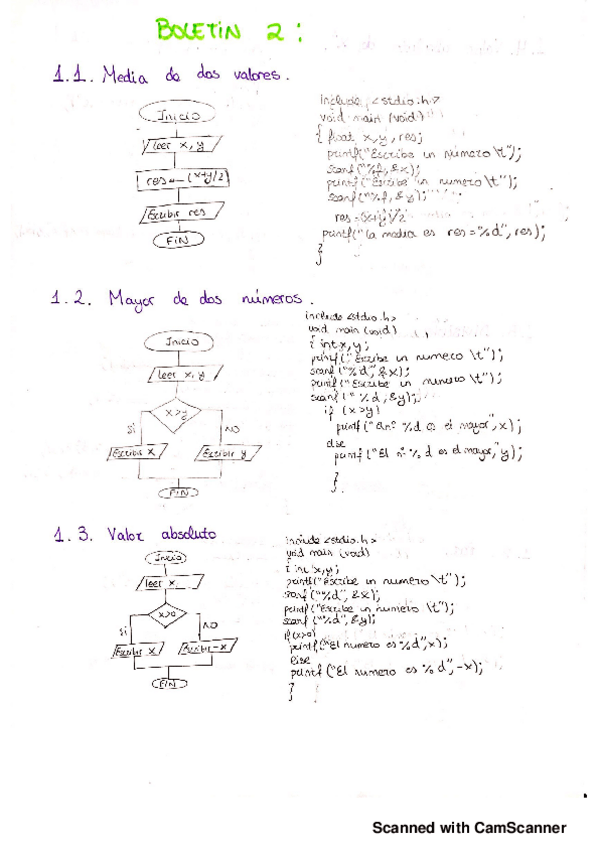 BOLETIN 2:
1.1. Media de dos valores.
Inicio
Leer x, y
res = (x+y/2)
Escribir res
FIN
include <stdio.h>
void main (void)
{ float x, y, res;
printf("Escribe un número \t");
scanf("%f, &x);
printf("Escribe un numero \t");
scanf("%f, &y);
printf("La media es res="%d", res);
}
1.2. Mayor de dos números.
Inicio
leer x, y
x>y
Sí
NO
Escribir x
Escribir y
FIN
include <stdio.h>
void main (void)
{ int x, y;
printf("Escribe un numero \t");
scanf("%d", &x);
printf("Escribe un numero \t");
scanf("%d, &y);
if (x>y)
printf("El nº %d es el mayor", x);
else
printf("El nº %d es el mayor", y);
}
}
1.3. Valor absoluto
Inicio
leer x,
x>0
Sí
NO
Escribir x
Escribir -x
FIN
include <stdio.h>
void main (void)
{ int x, y;
printf("Escribe un numero \t");
scanf("%d", &x);
printf("Escribe un numero \t");
scanf("%d", &y);
if (x>0)
printf("El numero es %d", x);
else
printf("El numero es %d", -x);
}
}
Scanned with CamScanner